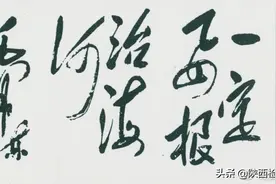 一定
要根
治海
河
毛泽东
头条 @陕西